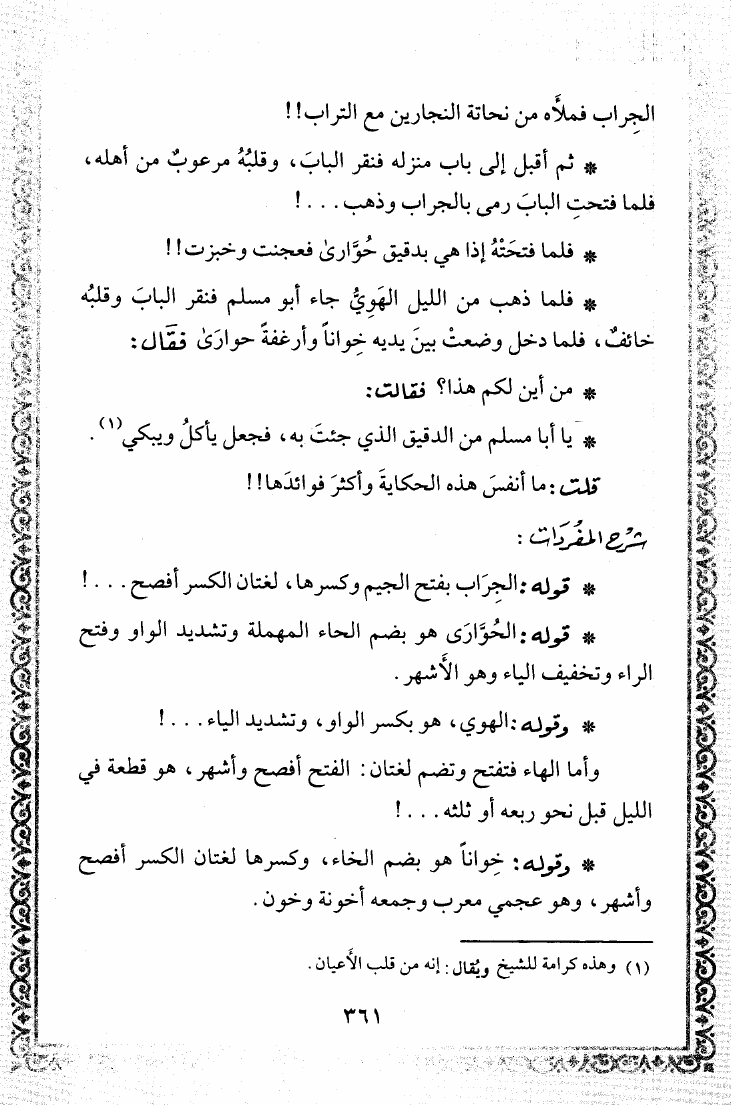 الجِراب فملأَه من نحاتة النجارين مع التراب!!
* ثم أقبل إلى باب منزله فنقر البابَ، وقلبُهُ مرعوبٌ من أهله،
فلما فتحتِ البابَ رمى بالجراب وذهب...!
* فلما فتحَتْهُ إذا هي بدقيق حُوَّارىٰ فعجنت وخبزت!!
* فلما ذهب من الليل الهَوِيُّ جاء أبو مسلم فنقر البابَ وقلبُه
خائفٌ، فلما دخل وضعتْ بينَ يديه خِواناً وأرغفةً حوارَىٰ فقال:
* من أين لكم هذا؟ فقالت:
* يا أبا مسلم من الدقيق الذي جئتَ به، فجعل يأكلُ ويبكي(١).
قلت: ما أنفسَ هذه الحكايةَ وأكثرَ فوائدَها!!
شَرْحُ المُفْرَدَات:
* قوله: الجِرَاب بفتح الجيم وكسرها، لغتان الكسر أفصح...!
* قوله: الحُوَّارَى هو بضم الحاء المهملة وتشديد الواو وفتح
الراء وتخفيف الياء وهو الأَشهر.
* وقوله: الهوي، هو بكسر الواو، وتشديد الياء...!
وأما الهاء فتفتح وتضم لغتان: الفتح أفصح وأشهر، هو قطعة في
الليل قبل نحو ربعه أو ثلثه...!
* وقوله: خِواناً هو بضم الخاء، وكسرها لغتان الكسر أفصح
وأشهر، وهو عجمي معرب وجمعه أخونة وخون.
(١) وهذه كرامة للشيخ ويُقال: إنه من قلب الأَعيان.
٣٦١